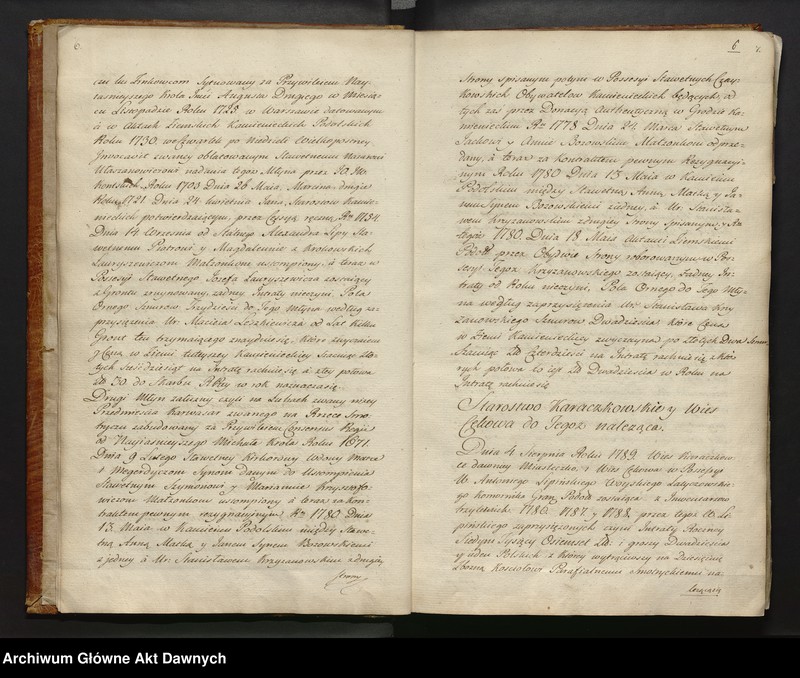 6.
czu lub Linkowcom Sytuowany za Przywileiem Nay
iasnieyszego Krola Jmći Augusta Drugiego w Miesią-
cu Listopadzie Roku 1725 w Warszawie datowanym
a w Aktach Ziemskich Kamienieckich Podolskich
Roku 1730. we Czwartek po Niedzieli Wielkopostney
Invocavit zwaney oblatowanym Sławetnemu
nadania tegoż Młyna przez
Roku 1703 Dnia 26 Maia, Marcina drugie
Roku 1721. Dnia 24 kwietnia Jana, Jaroszow Kamie-
nieckich potwierdzaiącym, przez Cessyą ręczną Rku 1734.
Dnia 14 Września od Sławnego Alexandra Lipy Sła-
wetnemu Piotrowi y Magdalennie z Krokowskich
Ławryszewiczom Małżonkom ustąpiony, a teraz w
Possesyi Sławetnego Jozefa Ławryszewicza zostaiący
z Gruntu zruynowany, żadney Intraty nieczyni. Pola
Ornego Sznurow Trzydzieści do tego Młyna według za-
przysiężenia Ur. Macieia Leszkiewicza od Lat kilku
Grunt ten trzymaiącego znayduie się, które zwyczaiem
y Ceną w Ziemi tuteyszey Kamienieckiey Szacuiąc Zło-
tych Sześćdziesiąt na Intratę rachuie się, a z tey połowa
Zł 30 do Skarbu Rpltey w rok naznacza się.
Drugi Młyn zaliczny czyli na Łubach zwany niżey
Przedmieścia Karwasar zwanego na Rzece Smo-
tryczu zabudowany za Przywileiem Consensus Regii
od Nayiasnieyszego Michała Krola Roku 1671.
Dnia 9 Lutego Sławetney Wdowy Marce
i Megerdyczom Synom Danym do Ustąpienia
Sławetnym Szymonowi y Maryannie Krzysztofo-
wiczom Małżonkom ustąpiony a teraz za kon-
traktem pewnym rezygnacyinym Rku 1780 Dnia
13. Maia w Kamieńcu Podolskim między Sławe-
tną Anną Matką y Janem Synem Bozowskiemi
z jedney a Ur. Stanisławem Krzyżanowskim z drugiey
Strony
6
7.
Strony spisanym potym w Possesyi Sławetnych Czay-
kowskich Obywatelow Kamienieckich będących, od
tych zaś przez Donacyą Authentyczną w Grodzie Ka-
mienieckim Rku 1778 Dnia 24. Marca Sławetnym
Jackowi y Annie Bozowskim Małżonkom odprze-
dany, a teraz za Kontraktem pewnym Rezygnacyi-
nym Roku 1780 Dnia 13 Maia w Kamieńcu
Podolskim między Sławetną Anną Matką y Ja-
nem Synem Bozowskiemi z iedney, a Ur. Stanisła-
wem Krzyżanowskim z drugiey Strony Spisanym, y An-
tegoż 1780. Dnia 18 Maia Aktami Ziemskiemi
Podol: przez Obydwie Strony roborowanym w Pos-
sesyi Tegoż Krzyżanowskiego zostaiący, żadney In-
traty od Roku nieczyni, Pola Ornego do Tego Mły-
na według zaprzysiężenia Ur. Stanisława Krzy-
żanowskiego Sznurow Dwadzieścia które Ceną
w Ziemi Kamienieckiey zwyczayną po Złotych Dwa Sznur
Szacuiąc Zł Czterdzieści na Intratę rachuie się, z któ-
rych połowa to iest Zł Dwadzieścia w Roku na
Intratę rachuie się
Starostwo Karaczkowskie y Wieś
Cykowa do Jegoż należąca.
Dnia 4 Sierpnia Roku 1789. Wieś Karaczkow-
ce dawniey Miasteczko, i Wieś Cykowa w Possesyi
W. Antoniego Lipińskiego Woyskiego Latyczowskie-
go Komornika Gran: Podol: zostaiąca z Inwentarzow
trzyletnich 1786. 1787. y 1788. przez tegoż W. Li-
pińskiego zaprzysiężonych czyni Intraty Roczney
Siedym Tysięcy Ośmset Zł: i groszy Dwadzieścia
y ieden Polskich z ktorey wytrąciwszy na Dziesięcinę
zbożną Kościołowi Parafialnemu Smotryckiemu na-
leżącą
Archiwum Główne Akt Dawnych